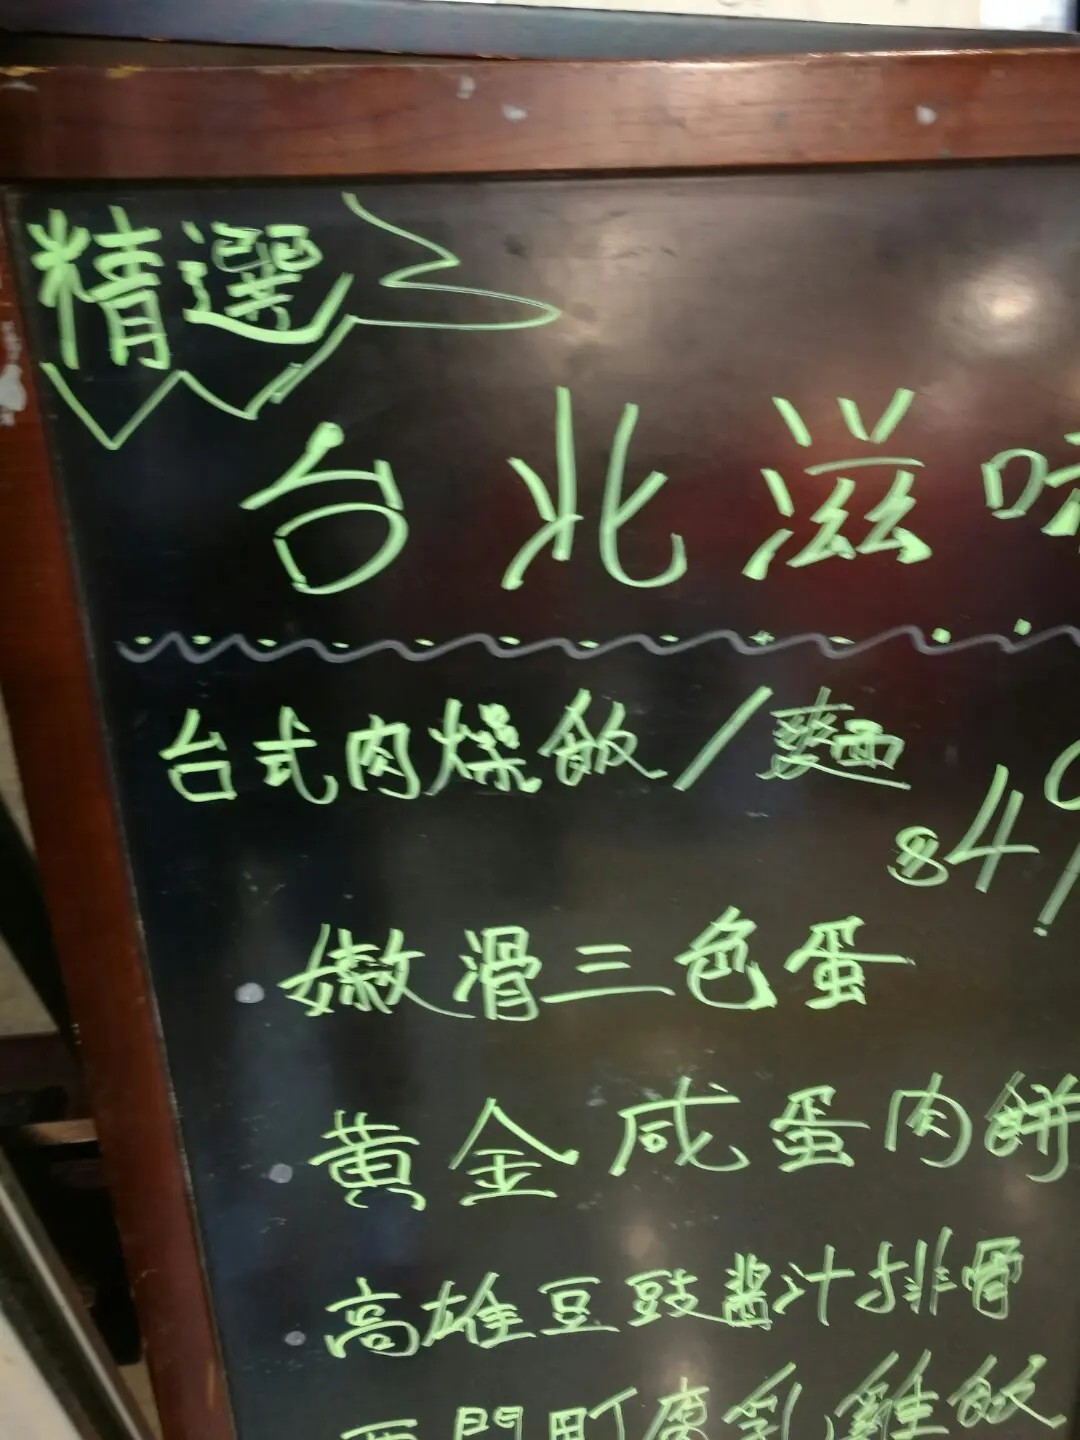 精選
台北滋味
台式肉燥飯/麵
$49
·嫩滑三色蛋
·黃金咸蛋肉餅
·高雄豆豉醬汁排骨
西門町腐乳雞飯